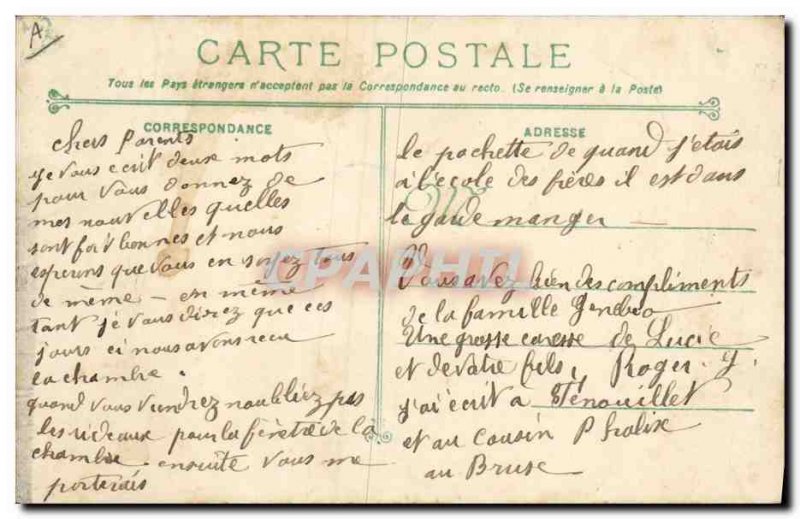 A
CARTE POSTALE
Tous les Pays étrangers n'acceptent pas la Correspondance au recto. (Se renseigner à la Poste)
CORRESPONDANCE
chers parents
je vous ecrit deux mots
pour vous donnez de
mes nouvelles quelles
sont fort bonnes et nous
esperons que vous en soyez tous
de même - en même
tant je vous direz que ces
jours ci nous avons recu
la chambre.
quand vous viendrez noubliez pas
les rideaux pour la fenêtre de la
chambre. ensuite vous me
porterais
ADRESSE
le pochette de quand j'etais
à l'école des frères il est dans
le garde manger
Vous avez bien des compliments
de la famille
Une grosse caresse de Lucie
et de votre fils, Roger. Y.
j'ai écrit a Ténouillet
et au cousin
au Bruse
CPAPHIL